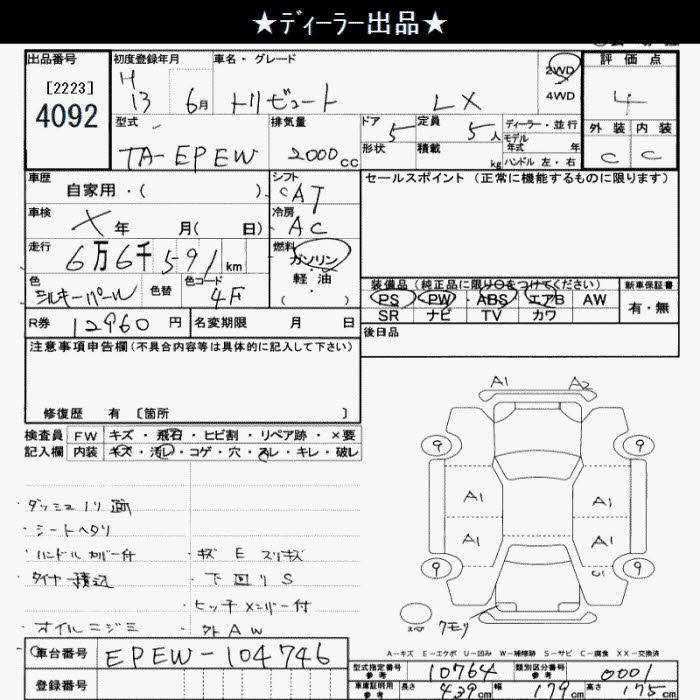 ★ディーラー出品★
出品番号
[2223]
4092
初度登録年月
H 13 6月
車名・グレード
トリビュート LX
2WD
4WD
評価点
4
外装 内装
C C
型式
TA-EPEW
排気量
2000cc
ドア 5
定員 5人
形状
積載 kg
ディーラー・並行
モデル
年式 年
ハンドル 左・右
車歴
自家用・( )
シフト
CAT
車検
X 年 月( 日)
冷房
AC
走行
6万6千591km
燃料
ガソリン
軽油
・
( )
色
シルキーパール
色替
色コード
4F
R券 12960円
名変期限 月 日
セールスポイント (正常に機能するものに限ります)
装備品(純正品に限り○をつけてください)
PS PW ABS エアB AW
SR ナビ TV カワ
新車保証書
有・無
後日品
注意事項申告欄(不具合内容等は具体的に記入して下さい)
修復歴 有 〔箇所 〕
検査員
記入欄
FW キズ・飛石・ヒビ割・リペア跡・×要
内装 キズ・汚レ・コゲ・穴・スレ・キレ・破レ
・シートヘタリ
・ハンドルカバー付
・タイヤ積込
・オイルニジミ
・キズ E スリキズ
・下回りS
・ヒッチメンバー付
・外AW
A1 A2
9 9
A1 A1
A1 A1
9 9
スペア
クモリ
A-キズ E-エクボ U-凹み W-補修跡 S-サビ C-腐食 XX-交換済
車台番号 EPEW-104746
登録番号
型式指定番号
参考
10764
類別区分番号
参考
0001
車庫証明用
参考
長さ 439cm 幅 179cm 高さ 175cm